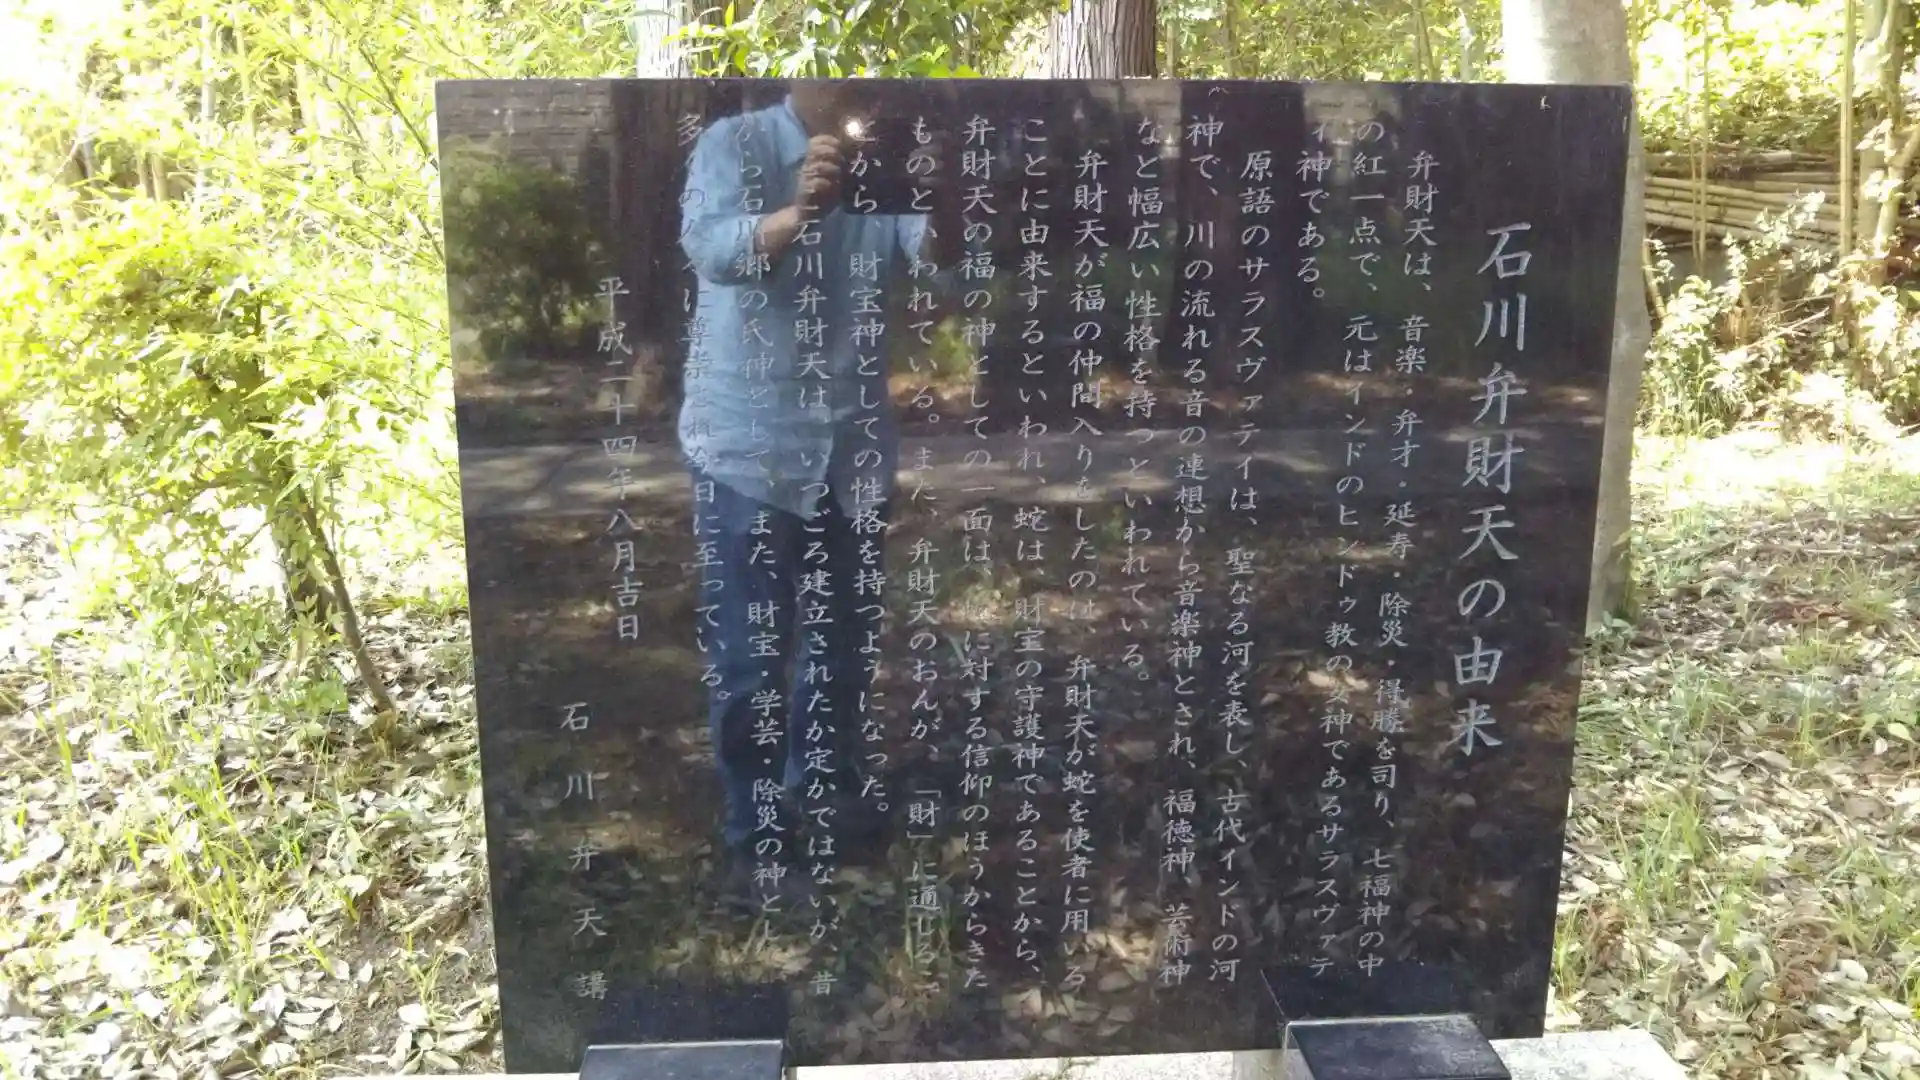 石川弁財天の由来
弁財天は、音楽・弁才・延寿・除災・得勝を司り、七福神の中
の紅一点で、元はインドのヒンドゥ教の女神であるサラスヴァテ
ィ神である。
原語のサラスヴァティは、聖なる河を表し、古代インドの河
神で、川の流れる音の連想から音楽神とされ、福徳神、芸術神
など幅広い性格を持つといわれている。
弁財天が福の仲間入りをしたのは、弁財天が蛇を使者に用いる
ことに由来するといわれ、蛇は、財宝の守護神であることから、
弁財天の福の神としての一面は、蛇に対する信仰のほうからきた
ものといわれている。また、弁財天のおんが、「財」に通じるこ
とから、財宝神としての性格を持つようになった。
石川弁財天は、いつごろ建立されたか定かではないが、昔
から石川郷の氏神として、また、財宝・学芸・除災の神とし
多くの人々に尊崇され今日に至っている。
平成二十四年八月吉日
石川弁天講